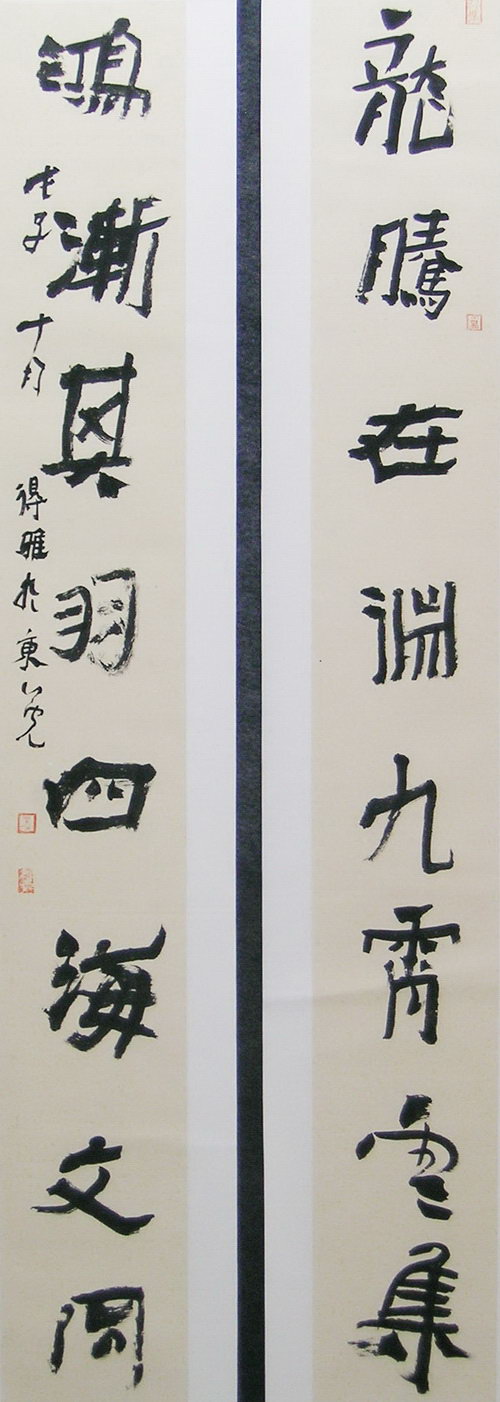 龍騰在淵九霄雲集
鴻漸其羽四海文同
戊子十月得雅於東莞